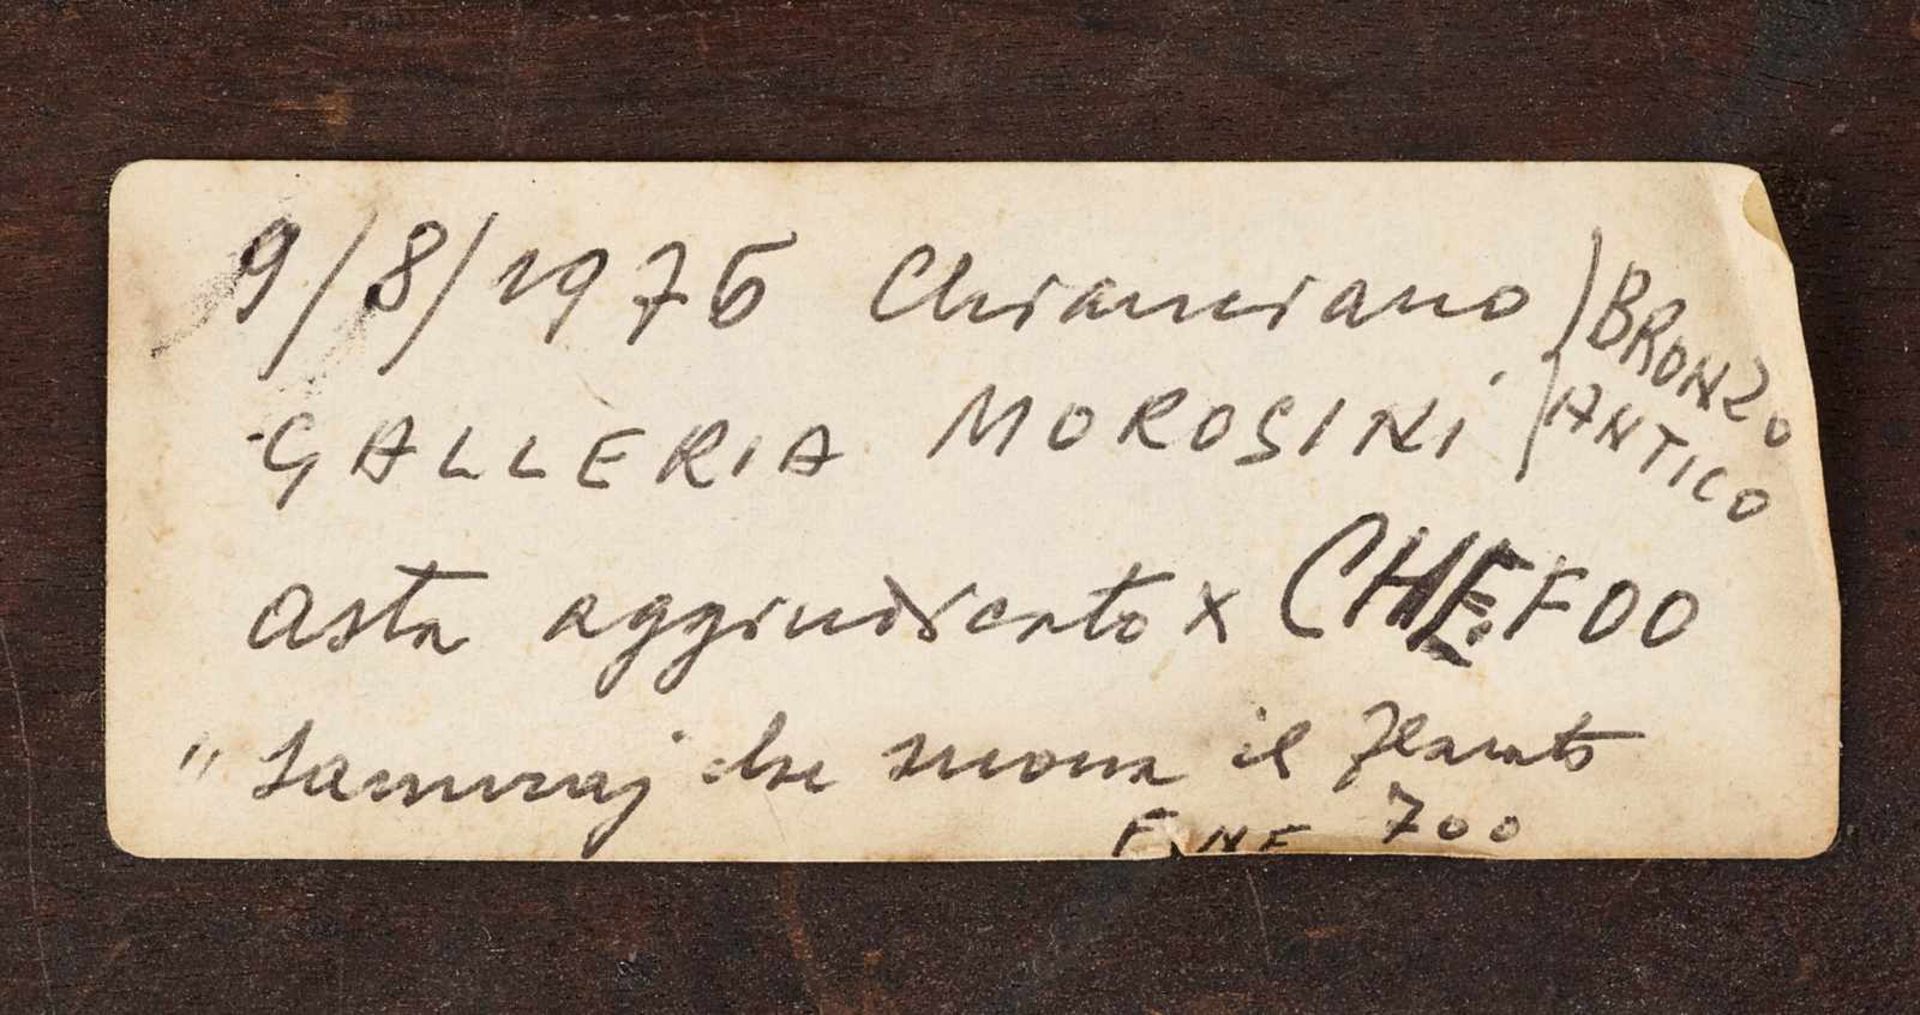 9/8/1976 Chianciano
GALLERIA MOROSINI
BRONZO
ANTICO
asta aggiudicato x CHEFOO
" Samuraj che suona il flauto
FINE 700